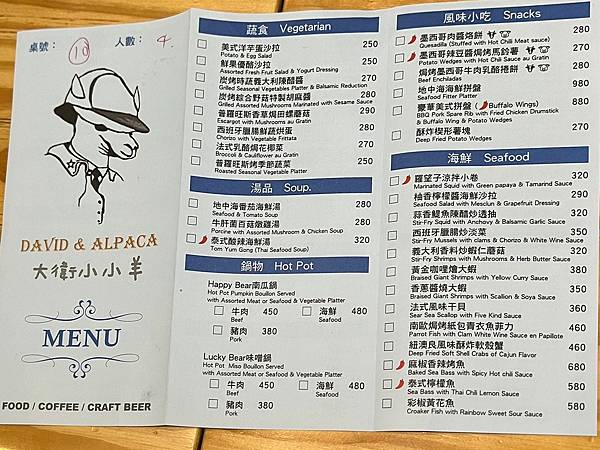 桌號： 10 人數： 4.
DAVID & ALPACA
大衛小小羊
MENU
FOOD / COFFEE / CRAFT BEER
蔬食 Vegetarian
美式洋芋蛋沙拉 250
Potato & Egg Salad
鮮果優酪沙拉 280
Assorted Fresh Fruit Salad & Yogurt Dressing
炭烤時蔬義大利陳醋醬 270
Grilled Seasonal Vegetables Platter & Balsamic Reduction
炭烤綜合野菇特製胡麻醬 280
Grilled Assorted Mushrooms Marinated with Sesame Sauce
普羅旺斯香草焗田螺蘑菇 290
Escargot with Mushrooms au Gratin
西班牙臘腸鮮蔬烘蛋 280
Chorizo with Vegetable Frittata
法式乳酪焗花椰菜 270
Broccoli & Cauliflower au Gratin
普羅旺斯烤季節蔬菜 250
Roasted Seasonal Vegetable Platter
湯品 Soup.
地中海番茄海鮮湯 280
Seafood & Tomato Soup
牛肝菌百菇燉雞湯 280
Porcine with Assorted Mushroom & Chicken Soup
泰式酸辣海鮮湯 320
Tom Yum Gong (Thai Seafood Soup)
鍋物 Hot Pot
Happy Bear南瓜鍋
Hot Pot Pumpkin Bouillon Served
with Assorted Meat or Seafood & Vegetable Platter
牛肉 450 海鮮 480
Beef Seafood
豬肉 380
Pork
Lucky Bear味噌鍋
Hot Pot Miso Bouillon Served
with Assorted Meat or Seafood & Vegetable Platter
牛肉 450 海鮮 480
Beef Seafood
豬肉 380
Pork
風味小吃 Snacks
墨西哥肉醬烙餅 280
Quesadilla (Stuffed with Hot Chili Meat sauce)
墨西哥辣豆醬焗烤馬鈴薯 270
Potato Wedges with Hot Chili Sauce au Gratin
焗烤墨西哥牛肉乳酪捲餅 280
Beef Enchiladas
地中海海鮮拼盤 980
Seafood Fitter Platter
豪華美式拼盤 (Buffalo Wings) 880
BBQ Pork Spare Rib with Fried Chicken Drumstick
& Buffalo Wing & Potato Wedges
酥炸楔形薯塊 270
Deep Fried Potato Wedges
海鮮 Seafood
羅望子涼拌小卷 320
Marinated Squid with Green papaya & Tamarind Sauce
柚香檸檬醬海鮮沙拉 290
Seafood Salad with Mesclun & Grapefruit Dressing
蒜香鯷魚陳醋炒透抽 320
Stir-Fry Squid with Anchovy & Balsamic Garlic Sauce
西班牙臘腸炒淡菜 350
Stir-Fry Mussels with clams & Chorizo & White Wine Sauce
義大利香料炒蝦仁蘑菇 320
Stir-Fry Shrimps with Mushrooms & Herb Butter Sauce
黃金咖哩燴大蝦 380
Braised Giant Shrimps with Yellow Curry Sauce
香蔥醬燒大蝦 350
Braised Giant Shrimps with Scallion & Soya Sauce
法式風味干貝 360
Sear Sea Scallop with Five Kind Sauce
南歐焗烤紙包青衣魚菲力 460
Parrot Fish with Clam White Wine Sauce en Papillote
紐澳良風味酥炸軟殼蟹 460
Deep Fried Soft Shell Crabs of Cajun Flavor
麻椒香辣烤魚 680
Baked Sea Bass with Spicy Hot chili Sauce
泰式檸檬魚 580
Sea Bass with Thai Chili Lemon Sauce
彩椒黃花魚 580
Croaker Fish with Rainbow Sweet Sour Sauce